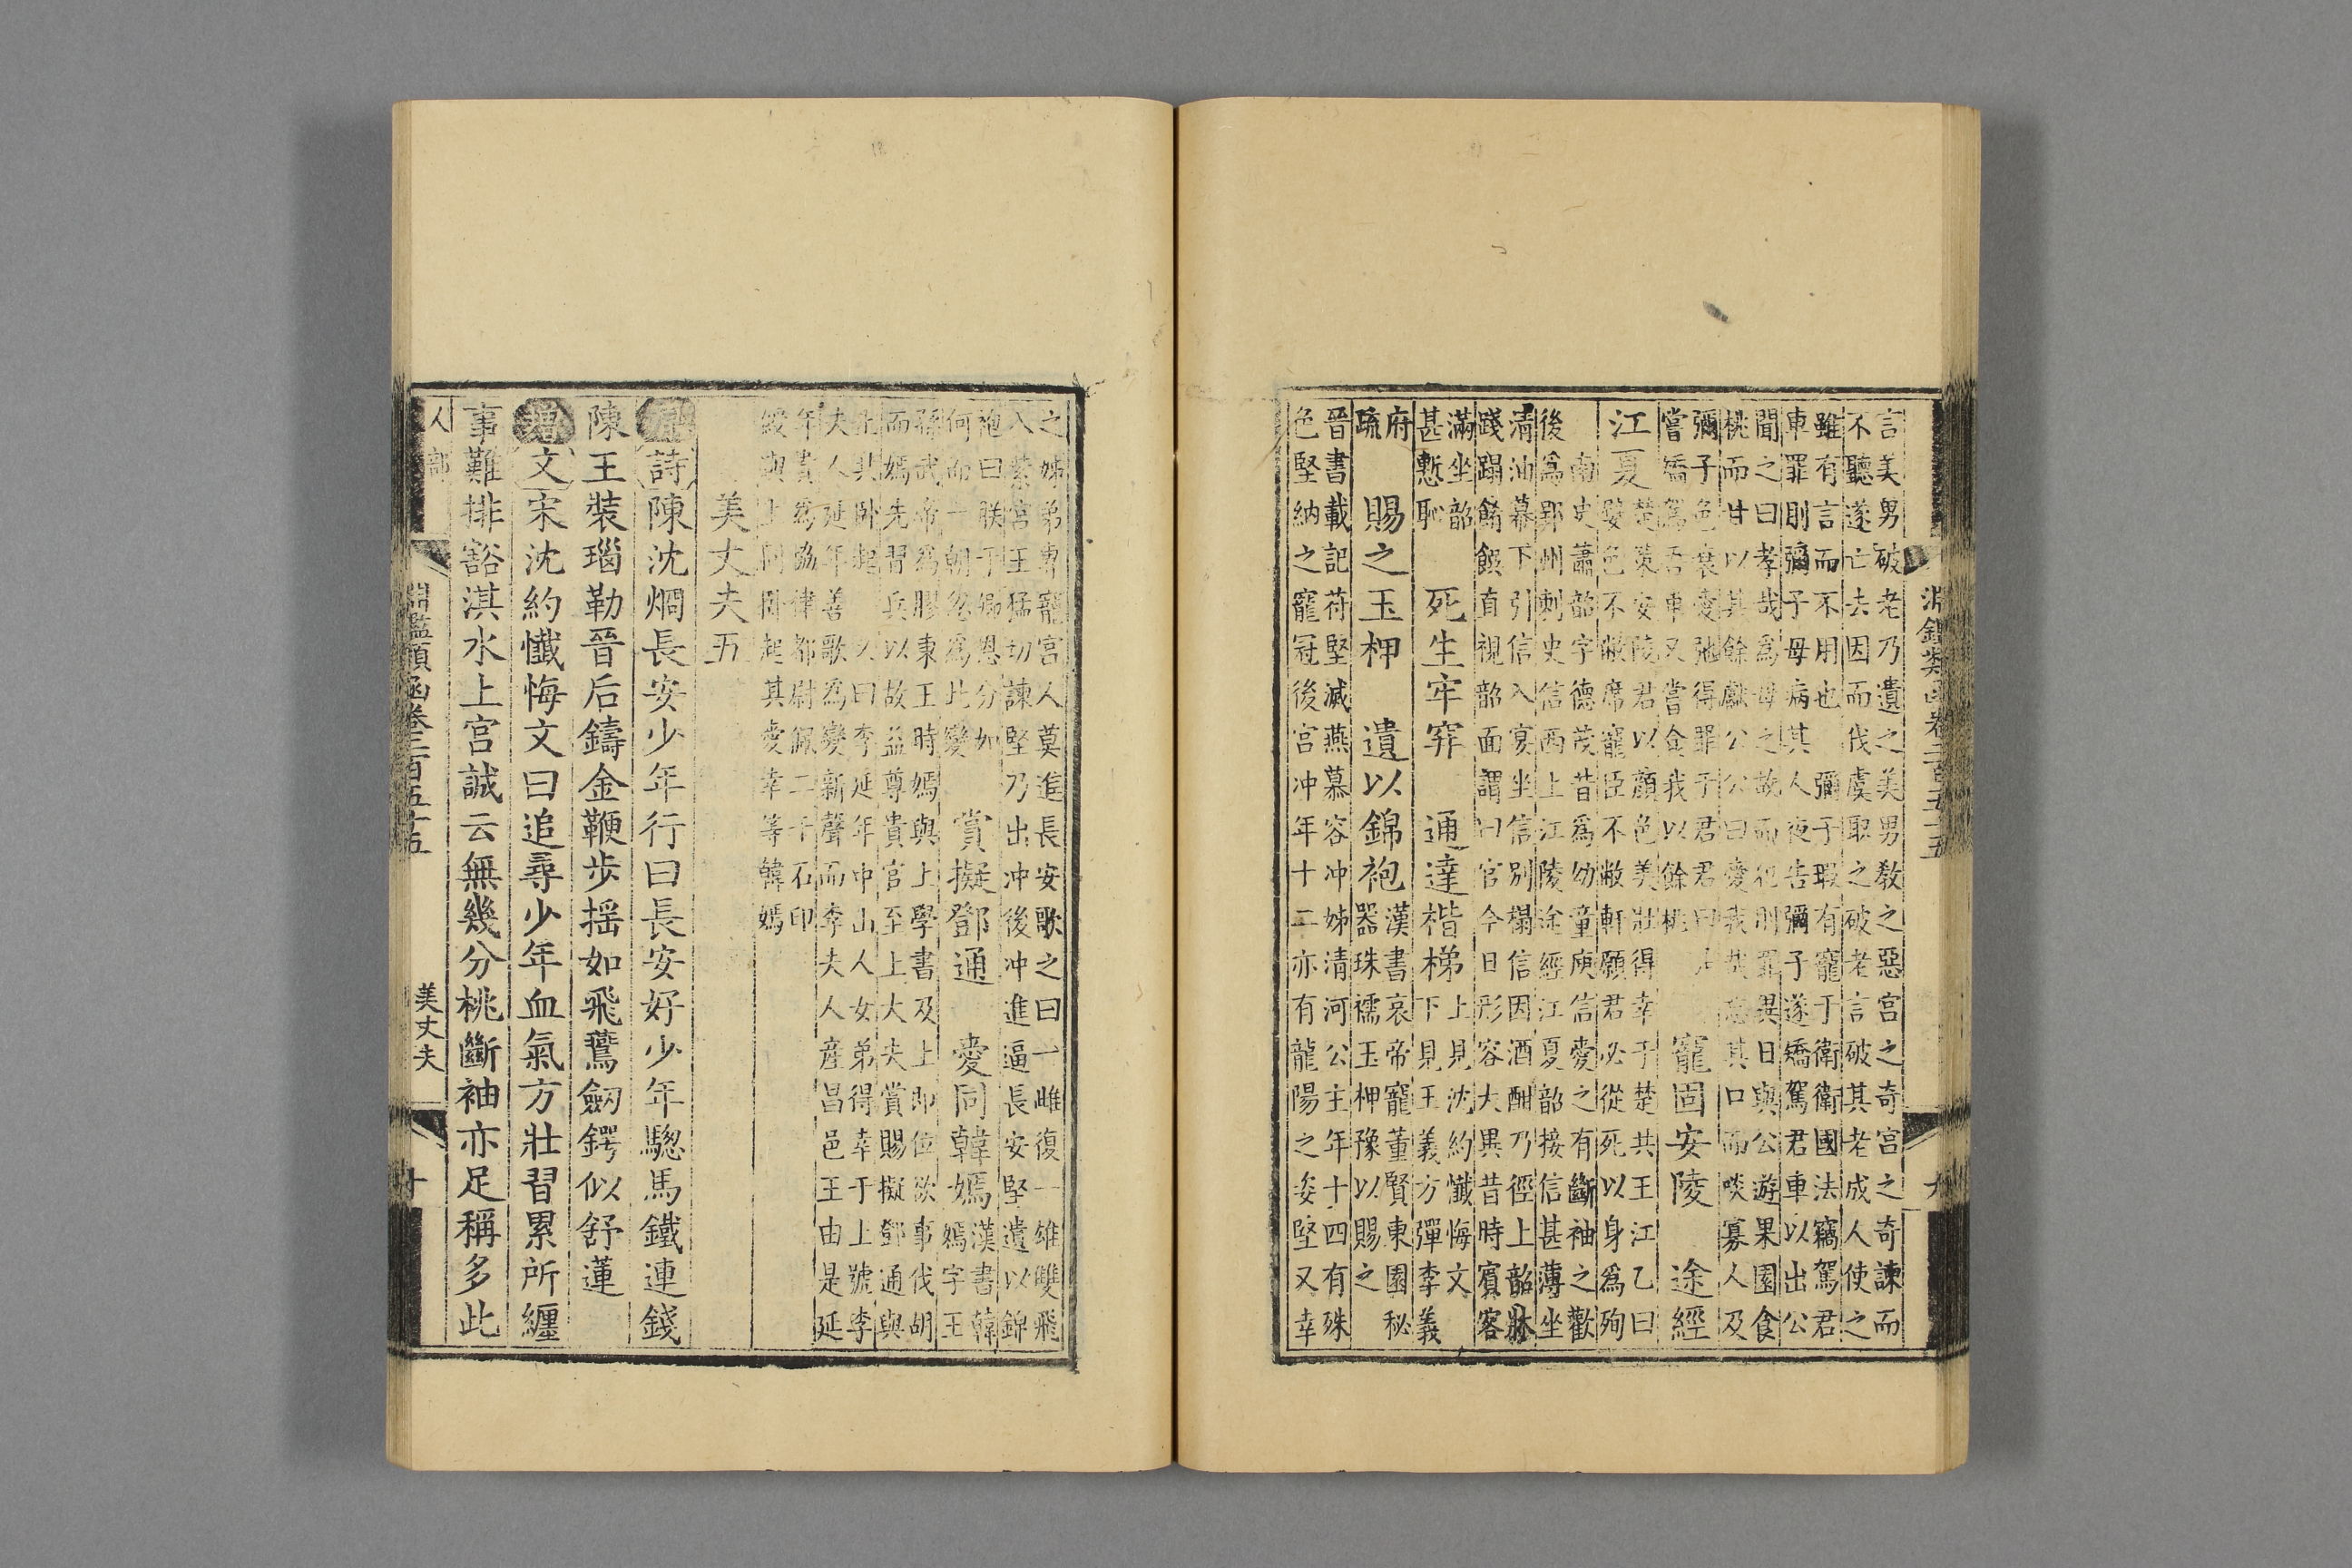 淵鑑類函卷二百五十五
九
言美男破老乃遺之美男教之惡宮之奇宮之奇諫而
不聽遂亡去因而伐虞取之破老言破其老成人使之
雖有言而不用也 彌子瑕有寵于衛衛國法竊駕君
車罪刖彌子母病其人夜告彌子遂矯駕君車以出公
聞之曰孝哉為母之故而犯刖罪異日與公遊果園食
桃而甘以其餘獻公公曰愛我哉忘其口而啖寡人及
彌子色衰愛弛得罪于君君曰是
嘗矯駕吾車又嘗食我以餘桃
寵固安陵 途經
江夏
楚策安陵君以顏色美壯得幸于楚共王江乙曰
嬖色不敝席寵臣不敝軒願君必從死以身為殉
南史蕭韶字德茂昔為幼童庾信愛之有斷袖之歡
後為郢州刺史信西上江陵途經江夏韶接信甚薄坐
清油幕下引信入宴坐信別榻信因酒酣乃徑上韶牀
踐蹋餚饌直視韶面謂曰官今日形容大異昔時賓客
滿坐韶
甚慙恥
死生牢穽 通達楷梯
上見沈約懺悔文
下見王義方彈李義
府
疏
賜之玉柙 遺以錦袍
漢書哀帝寵董賢東園秘
器珠襦玉柙豫以賜之
晉書載記苻堅滅燕慕容冲姊清河公主年十四有殊
色堅納之寵冠後宮冲年十二亦有龍陽之姿堅又幸
之姊弟專寵宮人莫進長安歌之曰一雌復一雄雙飛
入紫宮王猛切諫堅乃出冲後冲進逼長安堅遺以錦
袍曰朕于卿恩分如
何而一朝忽為此變
賞擬鄧通 愛同韓嫣
漢書韓
嫣字王
孫武帝為膠東王時嫣與上學書及上即位欲事伐胡
而嫣先習兵以故益尊貴官至上大夫賞賜擬鄧通與
上共卧起 又曰李延年中山人女弟得幸于上號李
夫人延年善歌為變新聲而李夫人產昌邑王由是延
年貴為協律都尉佩二千石印
綬與上同卧起其愛幸等韓嫣
美丈夫五
詩陳沈炯長安少年行曰長安好少年驄馬鐵連錢
陳王裝瑙勒晉后鑄金鞭步搖如飛鷰劒鍔似舒蓮
增文宋沈約懺悔文曰追尋少年血氣方壯習累所纏
事難排豁淇水上宮誠云無幾分桃斷袖亦足稱多此
人部
淵鑑類函卷二百五十五
美丈夫
十